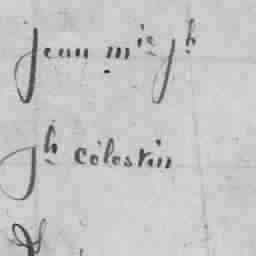 jean mie jh
jh célestin